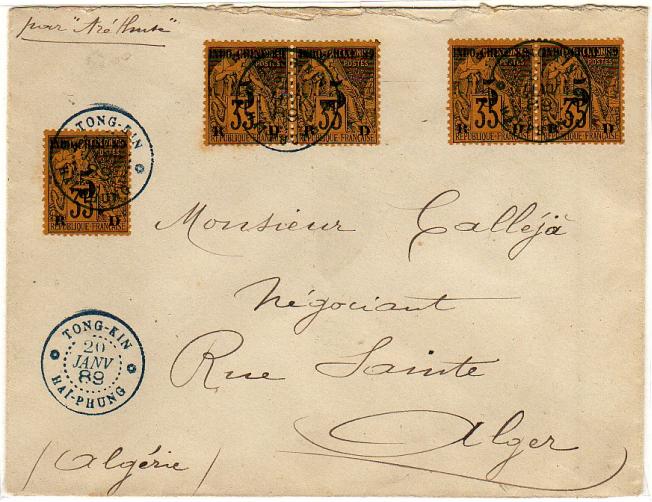 par "Aréthuse"
INDO-CHINE 5 POSTES 35 R D REPUBLIQUE FRANÇAISE
INDO-CHINE 5 POSTES 35 R D REPUBLIQUE FRANÇAISE
INDO-CHINE 5 POSTES 35 R D REPUBLIQUE FRANÇAISE
INDO-CHINE 5 POSTES 35 R D REPUBLIQUE FRANÇAISE
TONG-KIN
INDO-CHINE 5 35 R D REPUBLIQUE FRANÇAISE
Monsieur Calléjà
Négociant
TONG-KIN
20
JANV
89
HAI-PHUNG
Rue Sainte
Alger
(Algérie)